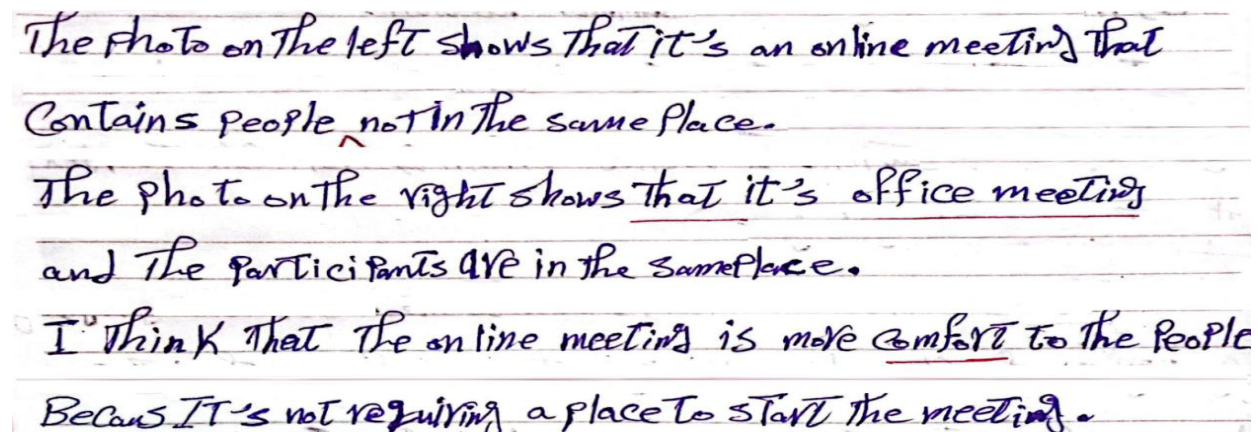 The photo on the left shows that it's an online meeting that
Contains people not in the same place.
The photo on the right shows that it's office meeting
and the participants are in the same place.
I think that the online meeting is more comfort to the people
Becaus IT's not requiring a place to start the meeting.